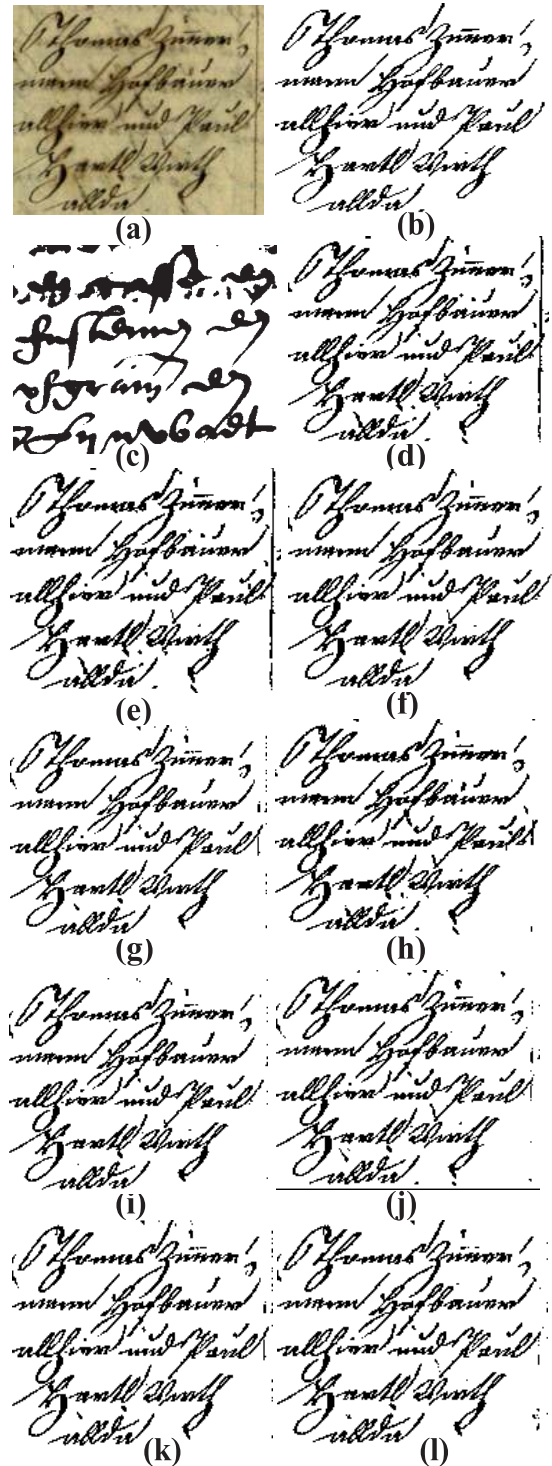 Thomas Zim̄er
mann Hofbauer
allhier und Paul
Hartl Wirth
allda.
(a)
Thomas Zim̄er
mann Hofbauer
allhier und Paul
Hartl Wirth
allda.
(b)
(c)
Thomas Zim̄er
mann Hofbauer
allhier und Paul
Hartl Wirth
allda.
(d)
Thomas Zim̄er
mann Hofbauer
allhier und Paul
Hartl Wirth
allda.
(e)
Thomas Zim̄er
mann Hofbauer
allhier und Paul
Hartl Wirth
allda.
(f)
Thomas Zim̄er
mann Hofbauer
allhier und Paul
Hartl Wirth
allda.
(g)
Thomas Zim̄er
mann Hofbauer
allhier und Paul
Hartl Wirth
allda.
(h)
Thomas Zim̄er
mann Hofbauer
allhier und Paul
Hartl Wirth
allda.
(i)
Thomas Zim̄er
mann Hofbauer
allhier und Paul
Hartl Wirth
allda.
(j)
Thomas Zim̄er
mann Hofbauer
allhier und Paul
Hartl Wirth
allda.
(k)
Thomas Zim̄er
mann Hofbauer
allhier und Paul
Hartl Wirth
allda.
(l)